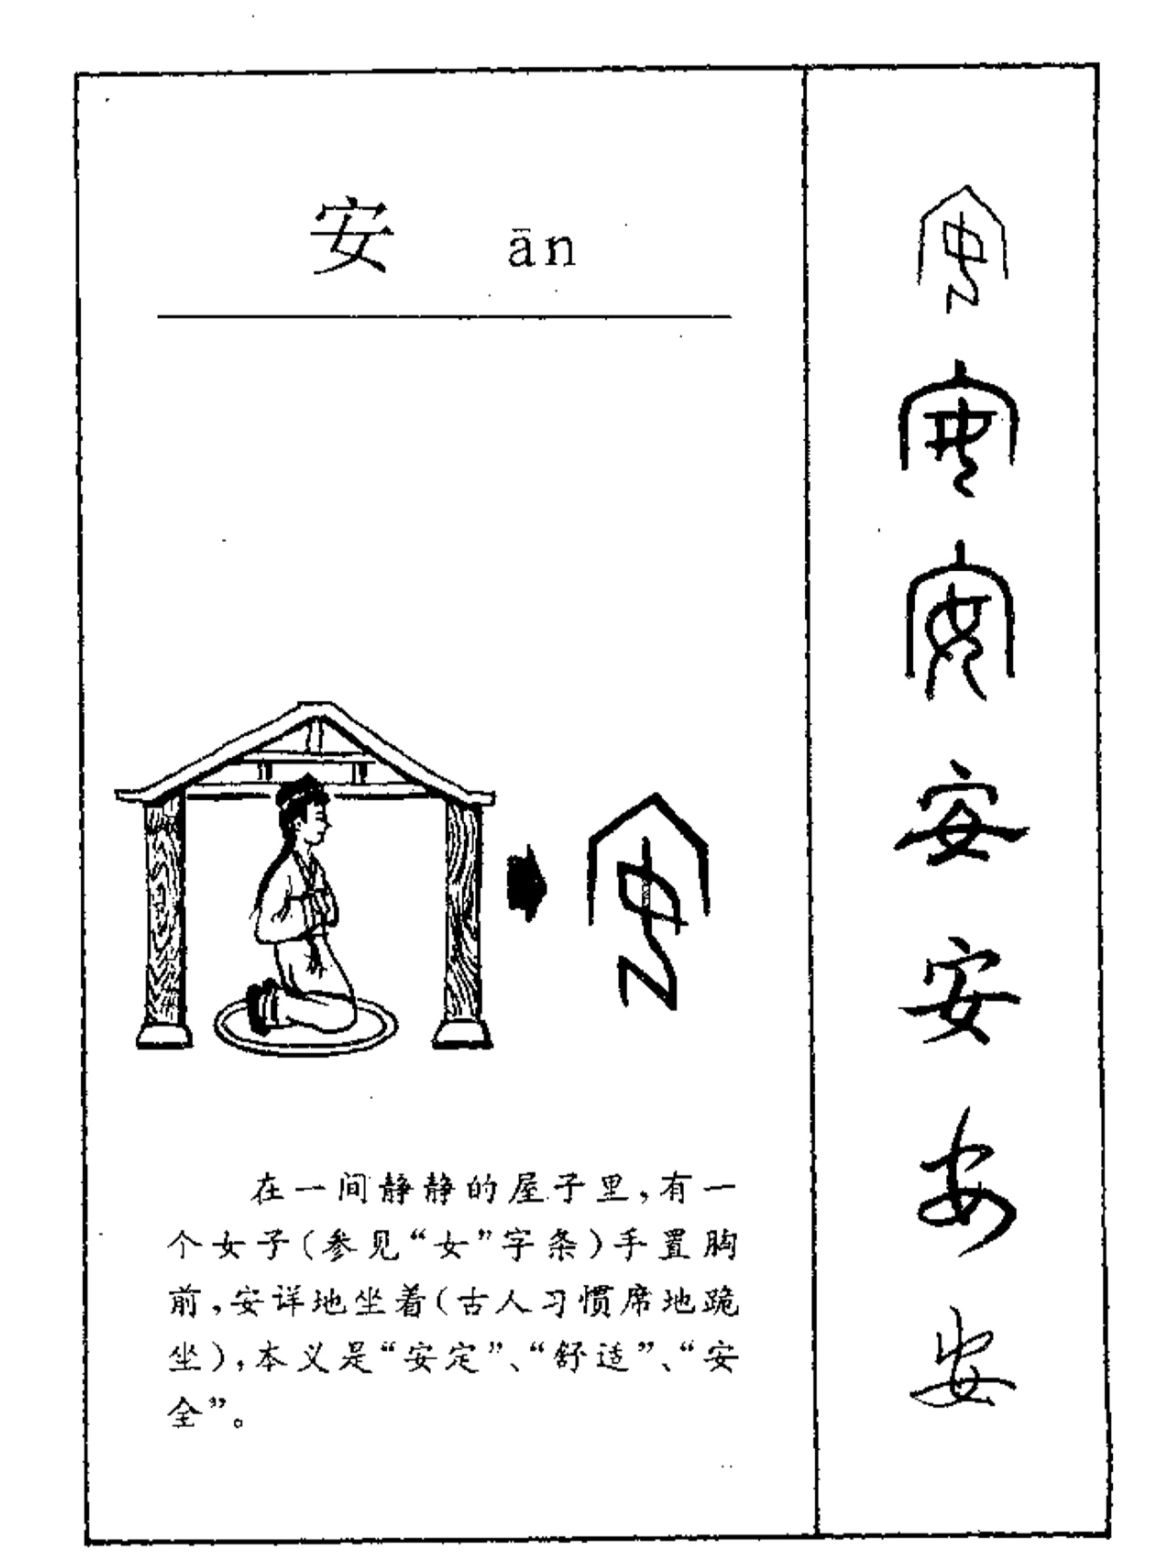 安 ān
在一间静静的屋子里，有一
个女子（参见“女”字条）手置胸
前，安详地坐着（古人习惯席地跪
坐），本义是“安定”、“舒适”、“安
全”。
安
安
安
安
安
安
安